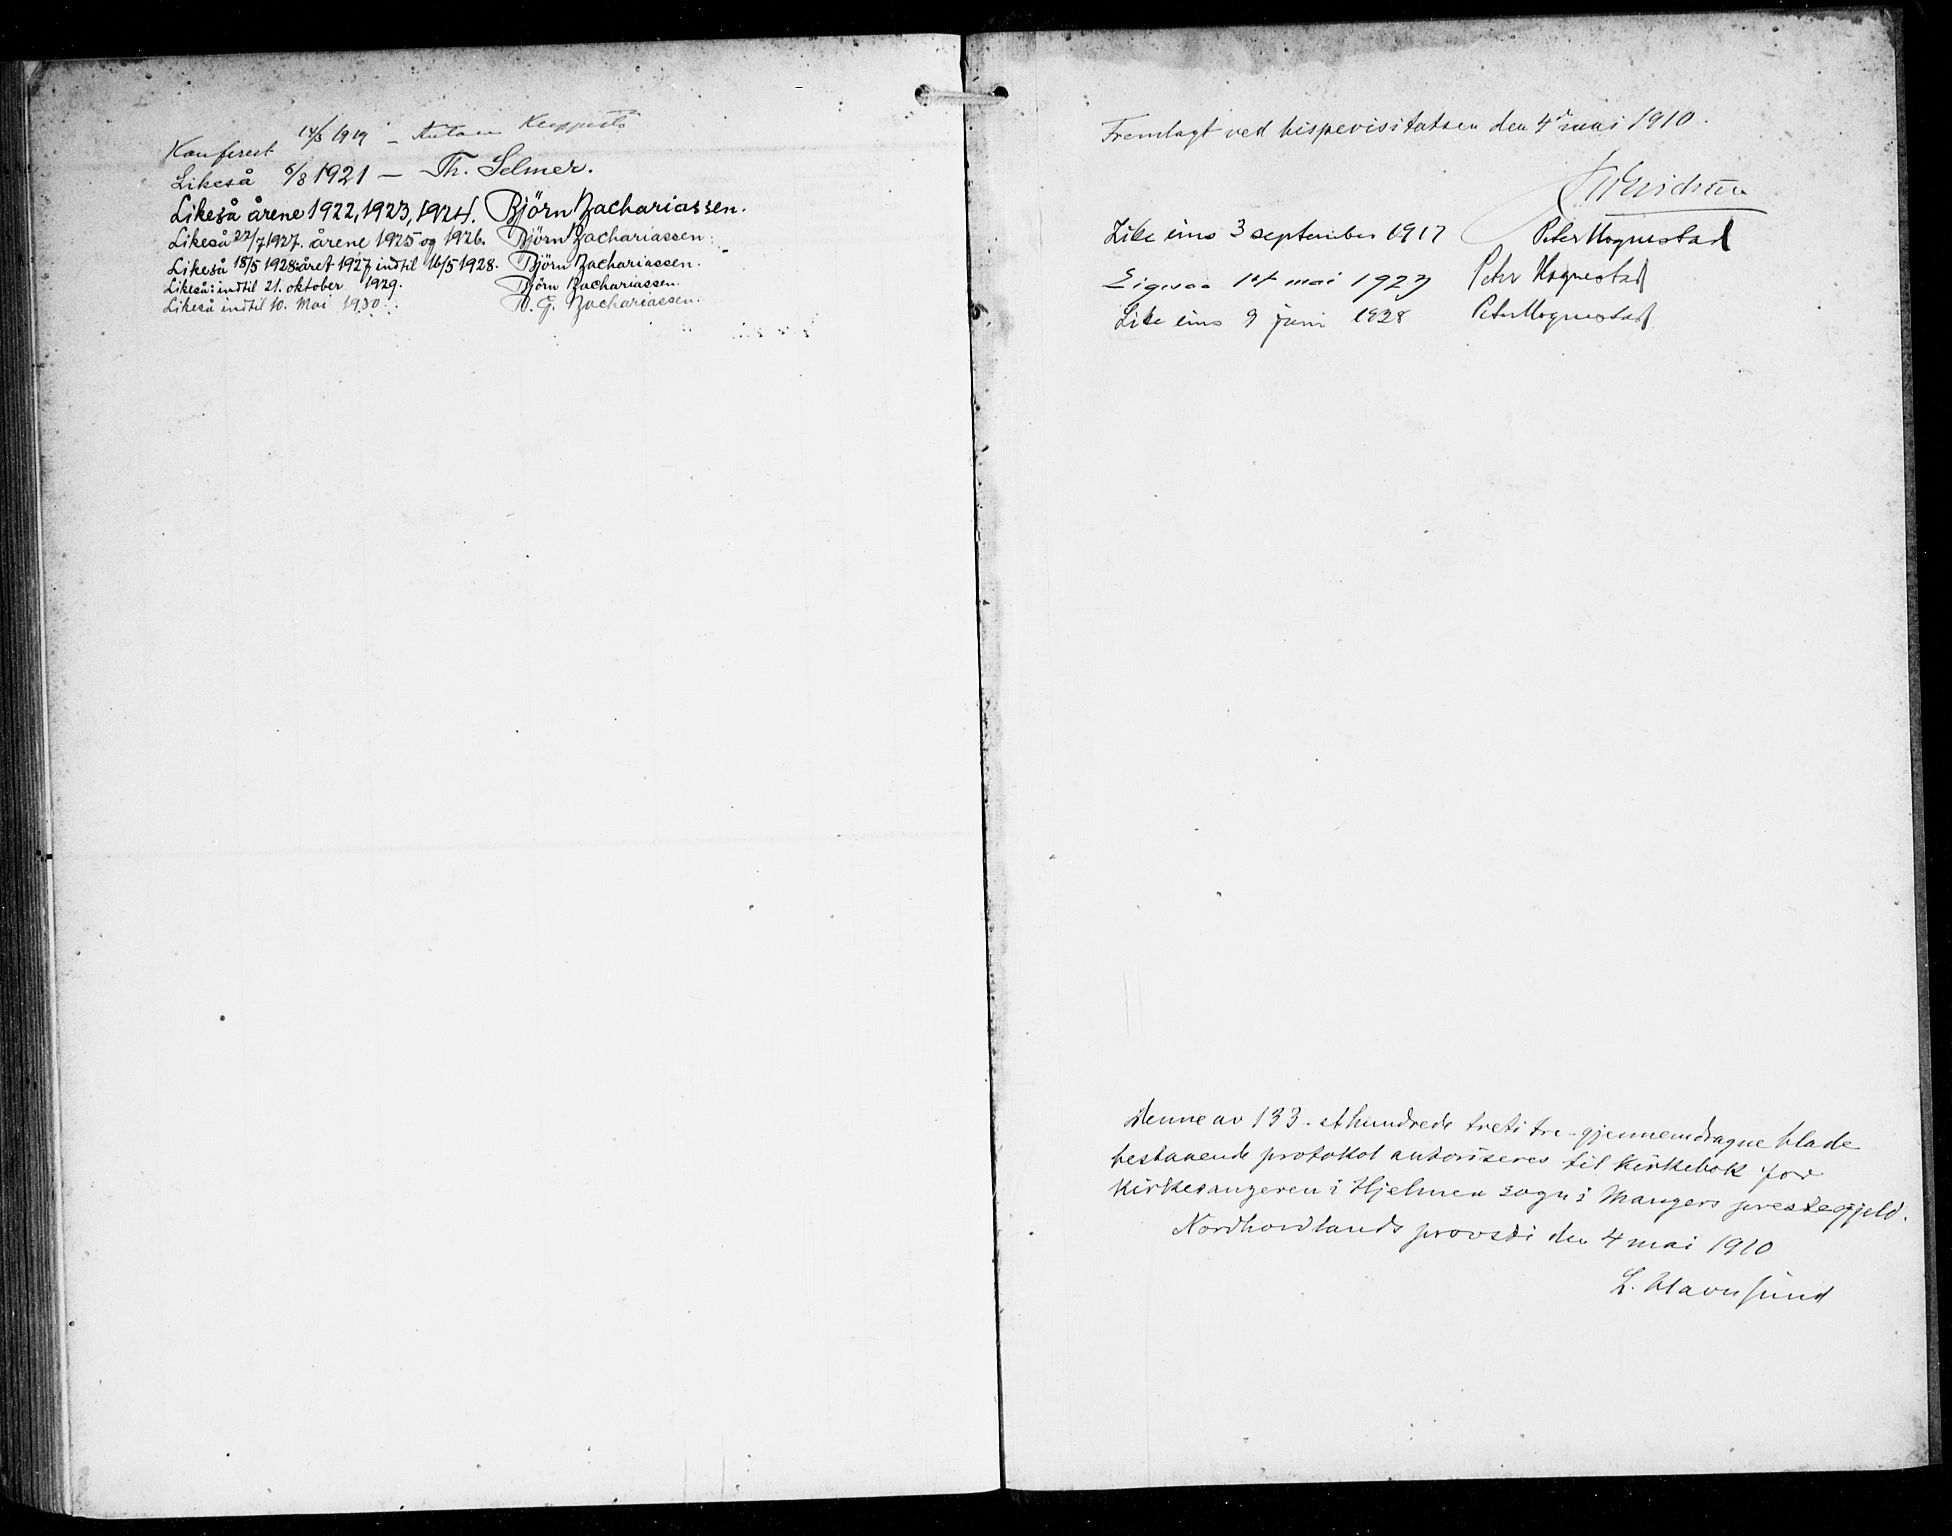 Konferert 14/5 1919 —
Likeså 6/8 1921 — Th. Selmer.
Likeså årene 1922, 1923, 1924. Björn Zachariassen.
Likeså 22/7 1927. årene 1925 og 1926. Björn Zachariassen.
Likeså 18/5 1928: året 1927 indtil 16/5 1928. Björn Zachariassen.
Likeså: indtil 21. oktober 1929. Björn Zachariassen.
Likeså indtil 10. Mai 1930. B. G. Zachariassen.
Fremlagt ved bispevisitatsen den 4de mai 1910.
Like eins 3 september 1917 Peter Hognestad
Eigsaa 14 mai 1923 Peter Hognestad
Like eins 9 juni 1928 Peter Hognestad
Denne av 133 - et hundrede treti tre - gjennemdragne blade
bestaaende protokol autoriseres til kirkebok for
kirkesangeren i Hjelmen sogn i Mangers prestegjeld.
Nordhordlands provsti den 4 mai 1910
L.